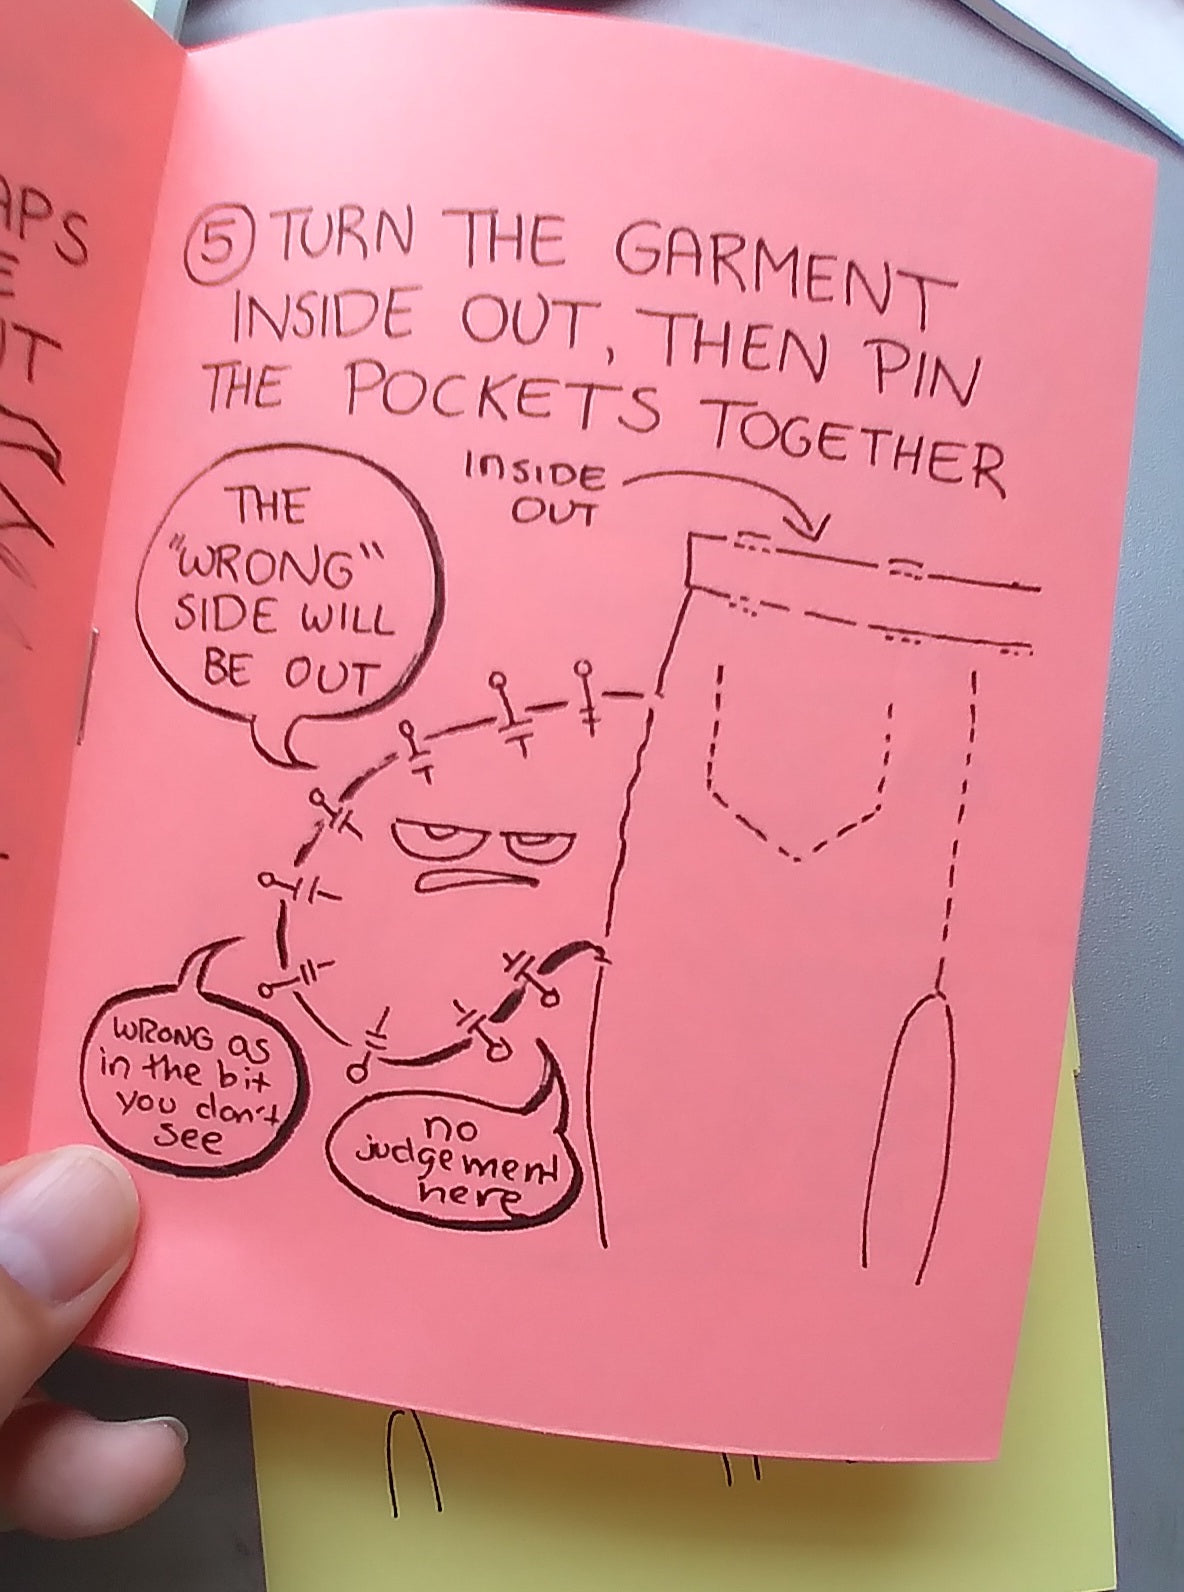 ⑤ TURN THE GARMENT
INSIDE OUT, THEN PIN
THE POCKETS TOGETHER
INSIDE
OUT
THE
"WRONG"
SIDE WILL
BE OUT
WRONG as
in the bit
you don't
see
no
judgement
here